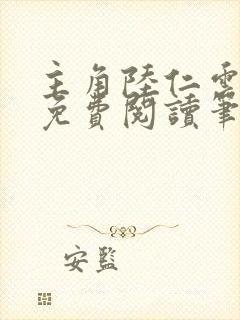 主角陸仁雲
免費閱讀筆
安監